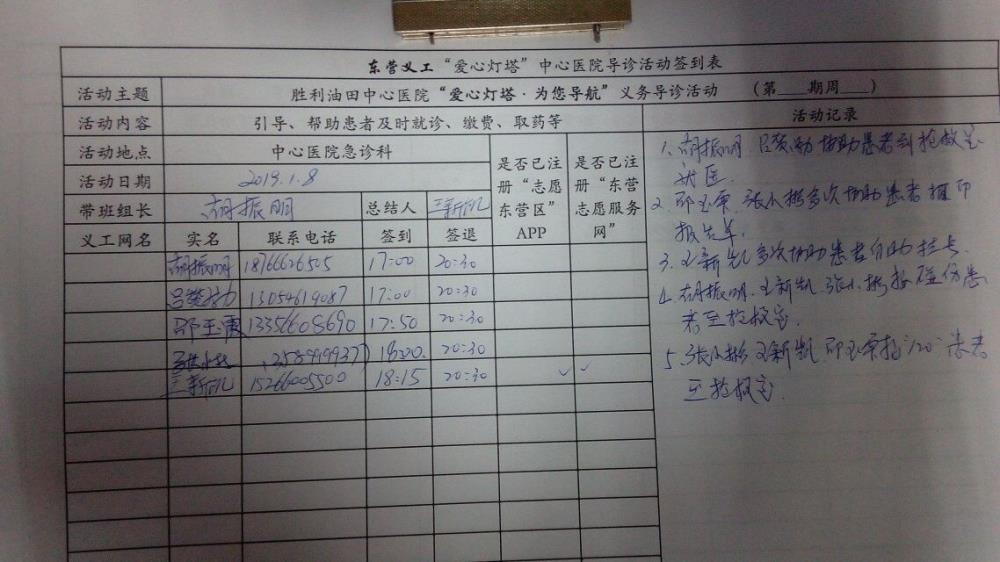 东营义工“爱心灯塔”中心医院导诊活动签到表
活动主题 胜利油田中心医院“爱心灯塔·为您导航”义务导诊活动 （第 期周 ）
活动内容 引导、帮助患者及时就诊、缴费、取药等 活动记录
活动地点 中心医院急诊科 是否已注册“志愿东营区”APP 是否已注册“东营志愿服务网”
活动日期 2019.1.8
带班组长 胡振明 总结人 王新凯
义工网名 实名 联系电话 签到 签退
胡振明 18766626505 17:00 20:30
13054619087 17:00 20:30
邵玉霞 13356608690 17:50 20:30
20:30
王新凯 15266005500 18:15 20:30 ✓ ✓
1、胡振明 协助患者到抢救室
就医.
2、张小彬多次协助患者打印
报告单.
3、王新凯多次协助患者自助挂号
4、胡振明.王新凯.张小彬 患
者至抢救室.
5、张小彬王新凯 120 患者
至抢救室.